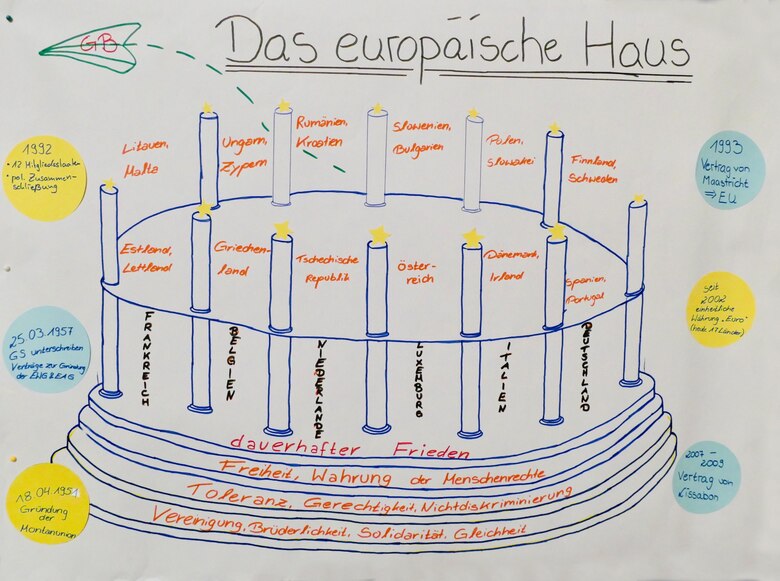 GB
Das europäische Haus
1992
• 12 Mitgliedsstaaten
• pol. Zusammen-
schließung
Litauen,
Malta
Ungarn,
Zypern
Rumänien,
Kroatien
Slowenien,
Bulgarien
Polen,
Slowakei
Finnland,
Schweden
1993
Vertrag von
Maastricht
⇒ EU
Estland,
Lettland
Griechen-
land
Tschechische
Republik
Öster-
reich
Dänemark,
Irland
Spanien,
Portugal
seit
2002
einheitliche
Währung „Euro"
(heute 17 Länder)
25.03.1957
GS unterschreiben
Verträge zur Gründung
der EWG & EAG
FRANKREICH
BELGIEN
NIEDERLANDE
LUXEMBURG
ITALIEN
DEUTSCHLAND
dauerhafter Frieden
Freiheit, Wahrung der Menschenrechte
Toleranz, Gerechtigkeit, Nichtdiskriminierung
Vereinigung, Brüderlichkeit, Solidarität, Gleichheit
18.04.1951
Gründung
der
Montanunion
2007 -
2009
Vertrag von
Lissabon